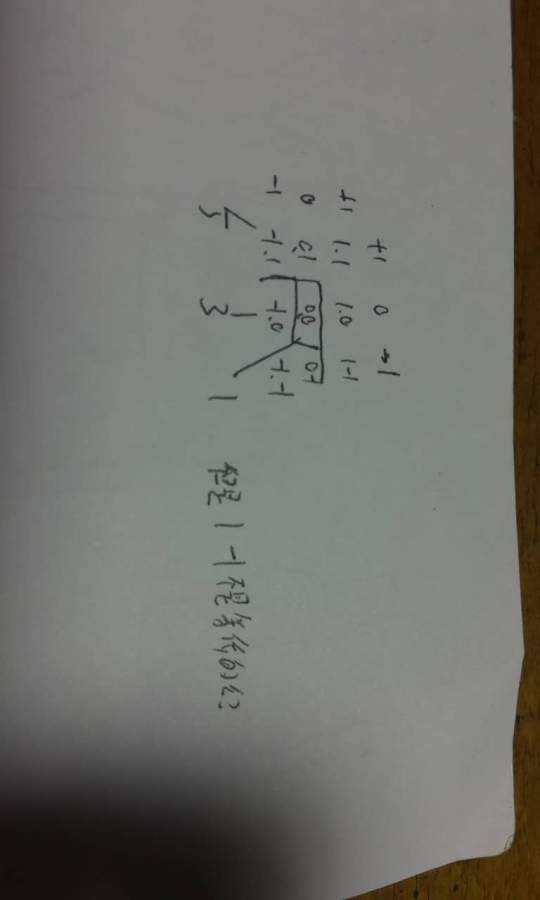 +1 0 -1
+1 1.1 1.0 1-1
0 0.1 0.0 0-1
-1 -1.1 -1.0 -1.-1
5 3 1 但是 1 -1 不是等价的么?